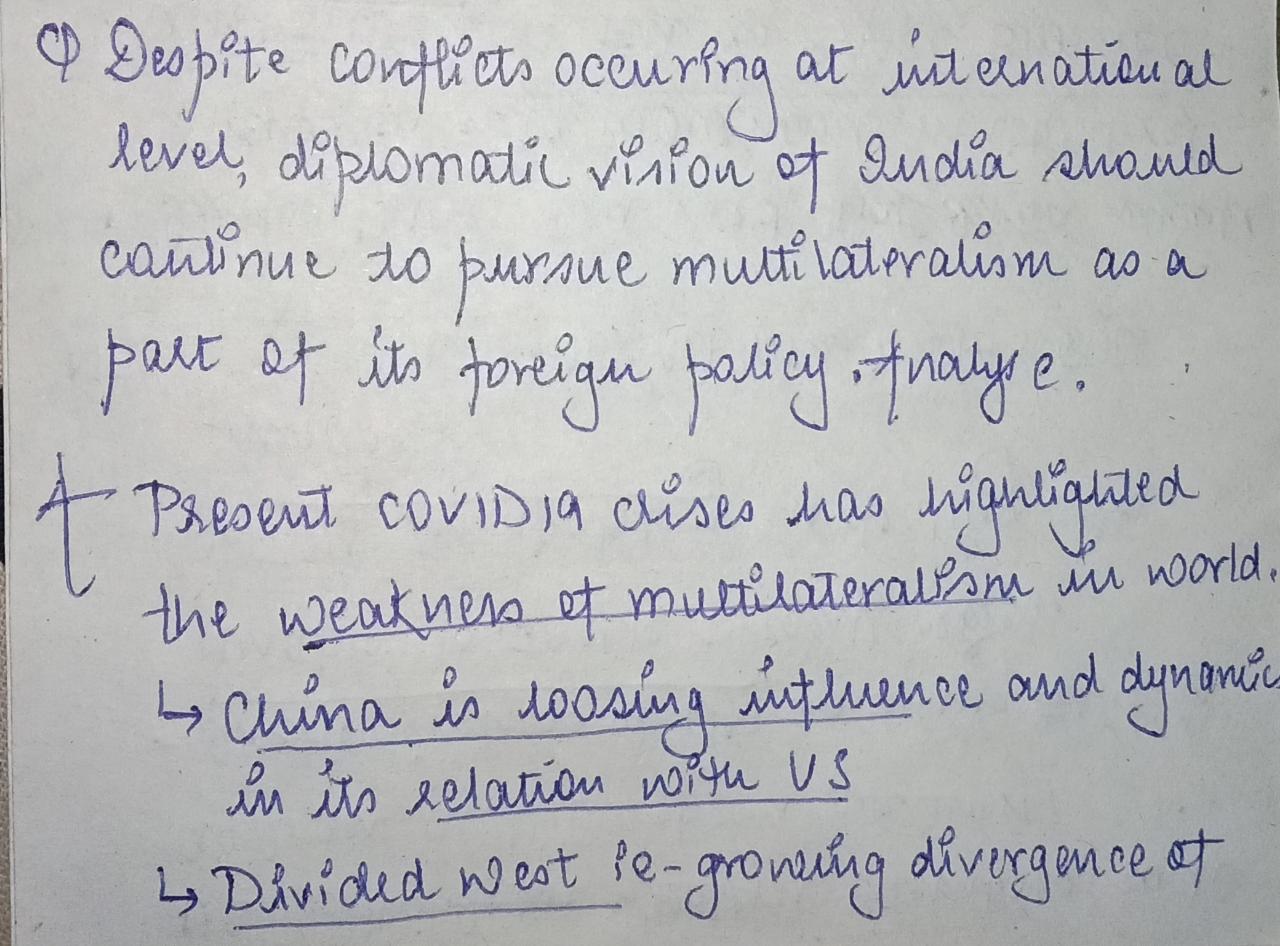 Q Despite conflicts occuring at international
level, diplomatic vision of India should
continue to pursue multilateralism as a
part of its foreign policy. Analyse.
A Present COVID19 crises has highlighted
the weakness of multilateralism in world.
↳ China is loosing influence and dynamic
in its relation with US
↳ Divided west ie-growing divergence of